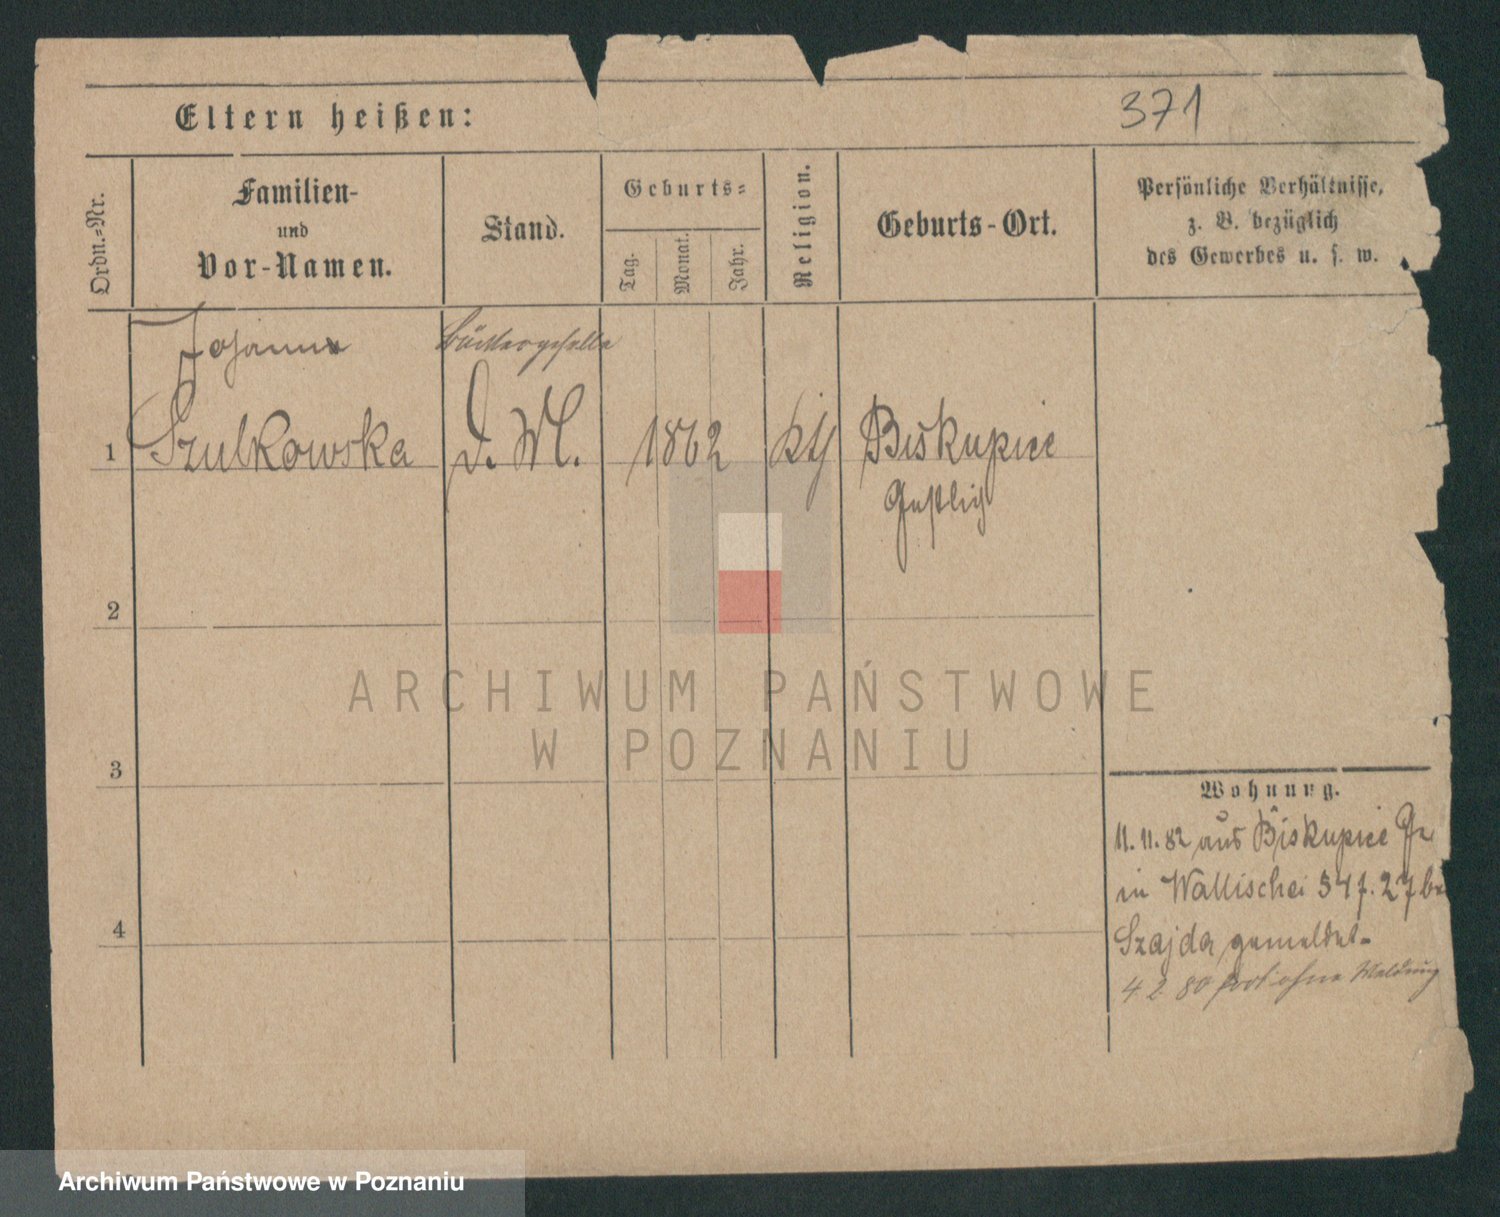 Eltern heißen:
371
Ordn.-Nr.
Familien-
und
Vor-Namen.
Stand.
Geburts-
Tag.
Monat.
Jahr.
Religion.
Geburts-Ort.
Persönliche Verhältnisse,
z. B. bezüglich
des Gewerbes u. s. w.
Johanna
1 Szulkowska D. M. 1862 kth Biskupice
2
3
4
Wohnung.
11.11.82 aus Biskupice
in Wallischei 34 f. 27 bei
Szajda gemeldet.
fort ohne Meldung
ARCHIWUM PAŃSTWOWE
W POZNANIU
Archiwum Państwowe w Poznaniu